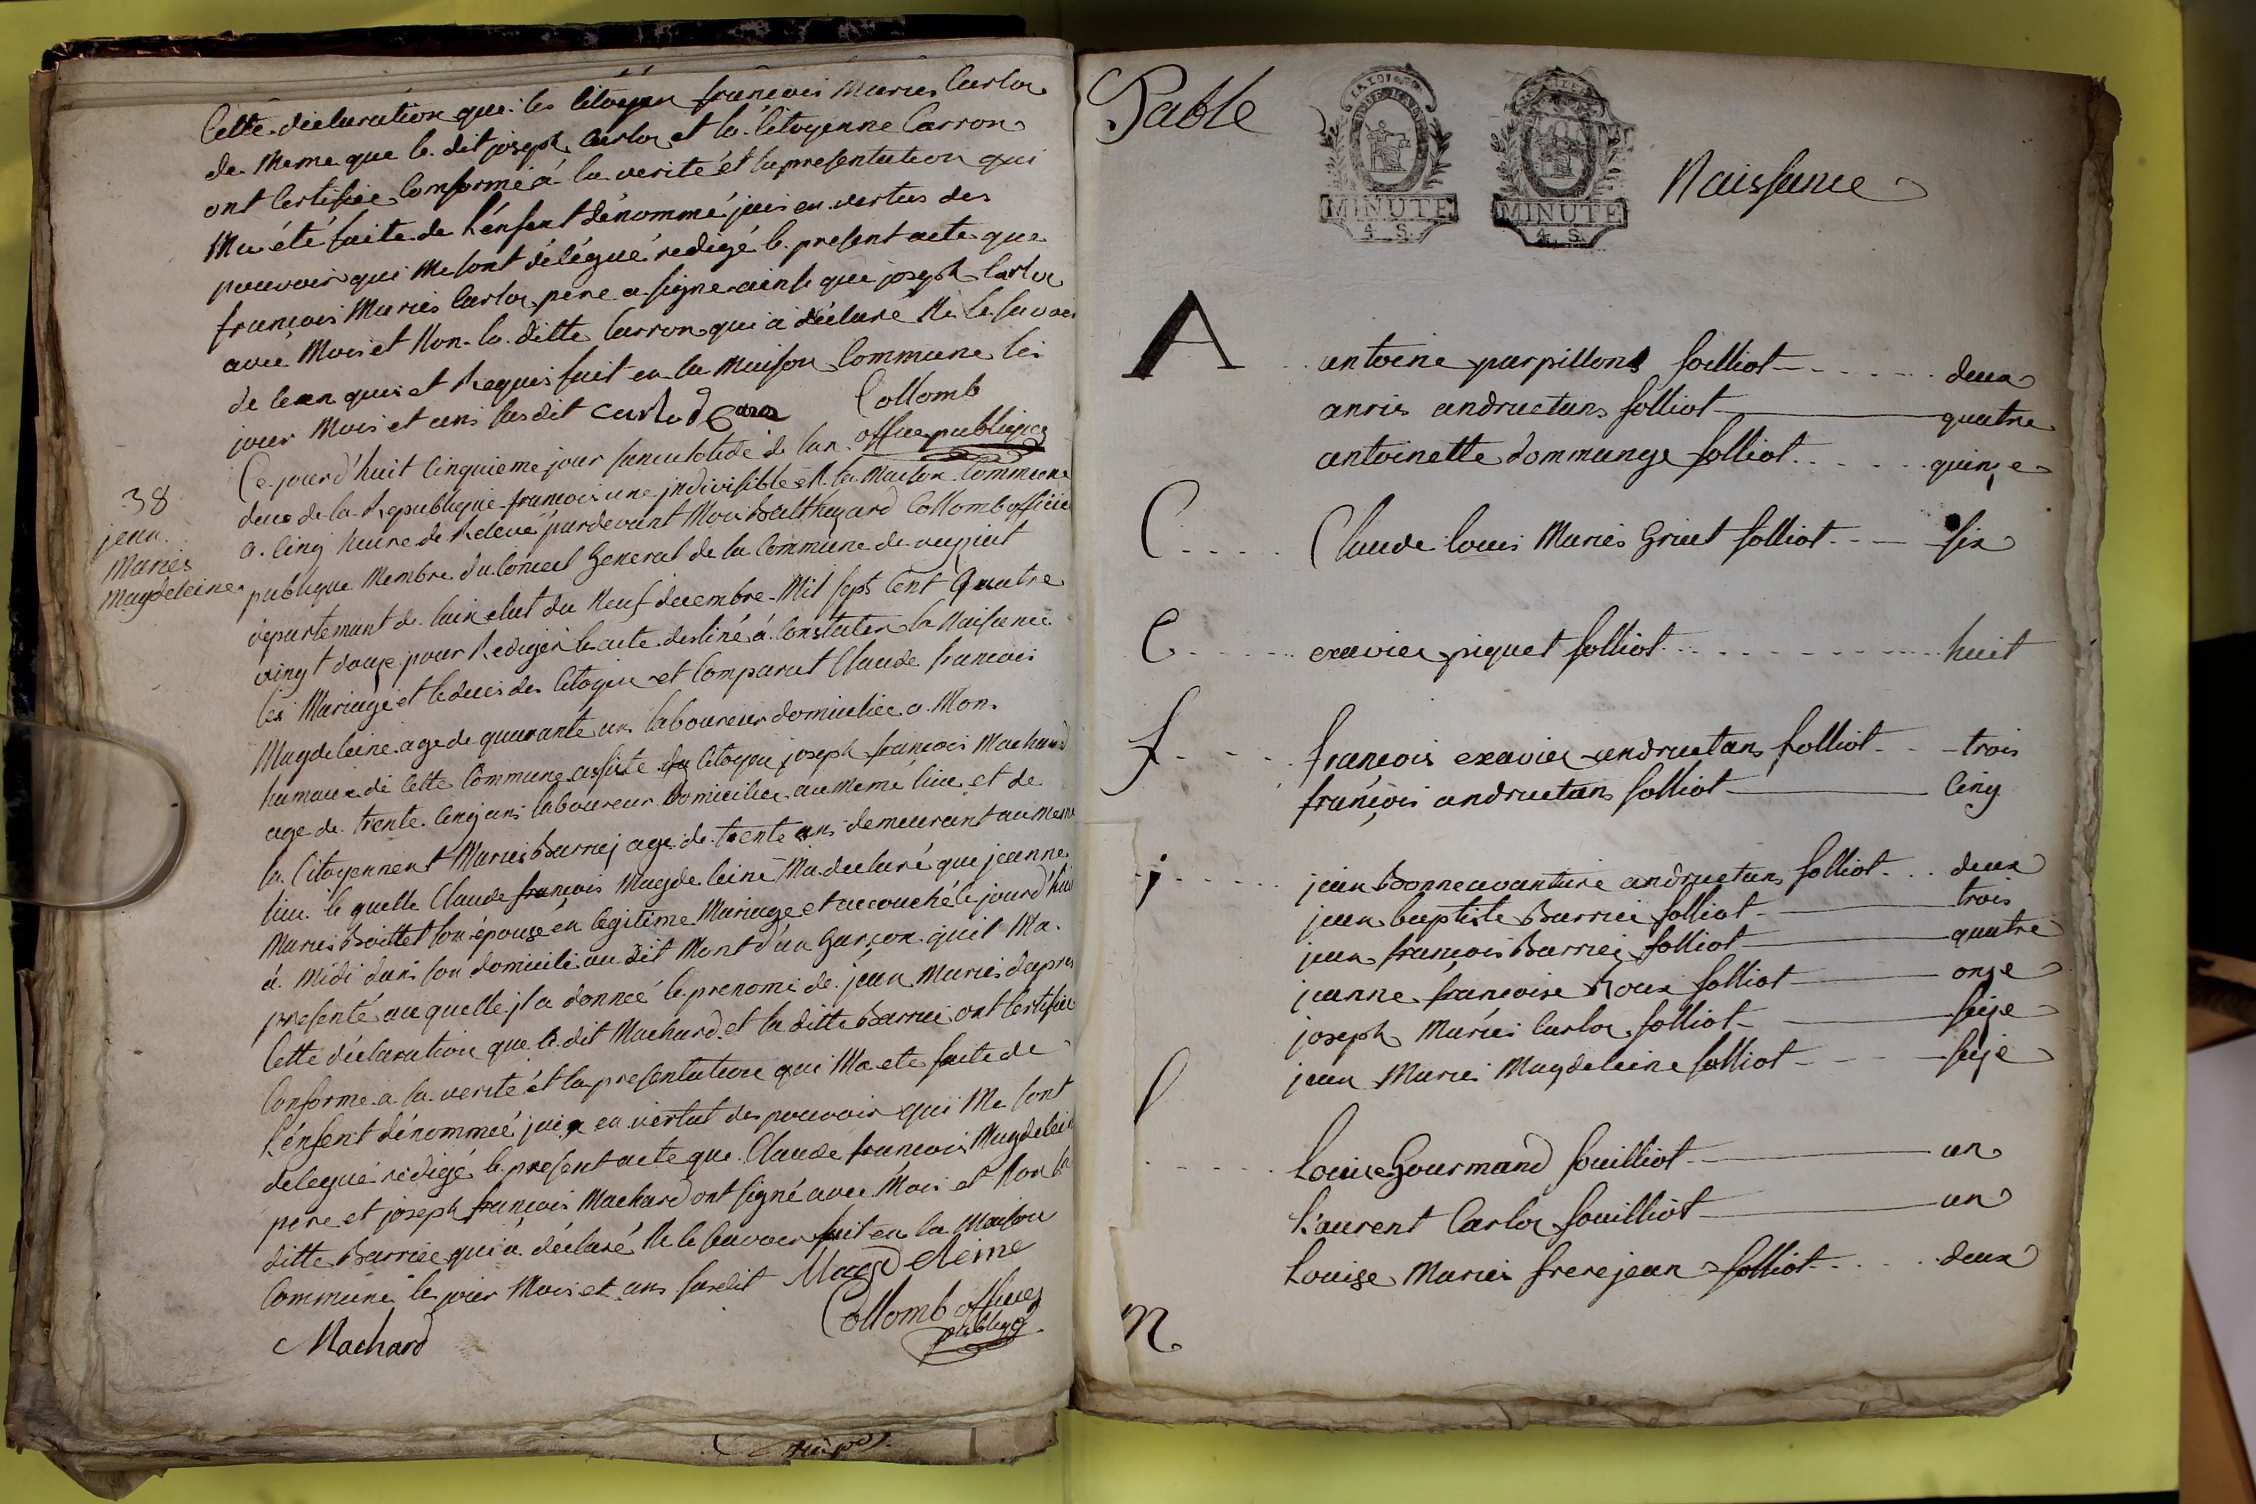 Cette déclaration que les citoyen françois Maries Carloz
de Meme que le dit joseph Carloz et la Citoyenne Carron
ont Certifiée Conforme à la verité et la presentation qui
Ma été faite de L'énfent dénommé j'ais en vertus des
pouvoir qui Me sont délégué redigé le present acte que
françois Maries Carloz pere a signe ainsi que joseph Carloz
avec Mois et Non la ditte Carron qui a déclaré Ne le savoir
de ce en quis et Requis fait en la Maison Commune les
jour Mois et ans susdit Carlod Collomb
officie publique
38
jean
Maries
Magdeleine
Ce jourd'huit Cinquieme jour sanculotide de lan
deux de la Republique françois une indivisible et la Maison Commune
a Cinq heure de Relevé pardevant Moi Balthazard Collomb officie
publique Membre du Conseil General de la Commune de
département de lain elut du Neuf decembre Mil sept Cent Quatre
vingt douze pour Rediger les acte destiné à Constater la Naisance
les Mariage et le deces des Citoyen et Comparut Claude francois
Magdeleine age de quarante ans laboureur domiciliee a Mon
hamaux de Cette Commune assiste du Citoyen joseph françois Machard
age de trente Cinq ans laboureur Domiciliee au meme lieu et de
la Citoyennent Maries Barriez age de trente ans demeurant au Meme
lieu le quelle Claude françois Magdeleine Ma declaré que jeanne
Maries Boittet son épouse en légitime Mariage et accouché le jourd'hui
à Midi dans son domicile au dit Mont d'un Garçon quil Ma
presenté au quelle jl a donnée le prenome de jean Maries dapres
Cette déclaration que le dit Machard et la ditte Barriee ont Certifiée
Conforme a la verité et la presentation qui Ma ete faite de
L'énfent dénommée jais en vertut des pouvoir qui Me sont
delegué redigé le present acte que Claude francois Magdeleine
pere et joseph françois Machard ont signé avec Mois et Non la
ditte Barriee qui a déclaré Ne le savoir fait en la Maison
Commune les jour Mois et ans susdit Magdeleine
Machard Collomb officiez
publique
Table
MINUTE
4. S.
MINUTE
4. S.
Naissance
A antoine parpillons folliot deux
anries andruetans folliot quatre
antoinette dommange folliot quinze
C Claude louis Maries Griet folliot six
E exavier piquet folliot huit
f françois exavier andruetans folliot trois
françois andruetans folliot Cinq
j jean Bonneavanture andruetans folliot deux
jean baptiste Barriei folliot trois
jean françois Barriei folliot quatre
jeanne françoise Roux folliot onze
joseph Maries Carloz folliot seize
jean Maries Magdeleine folliot seize
l Louise Gourmand fouilliot un
Laurent Carloz fouilliot un
Louise Maries frerejean folliot deux
N